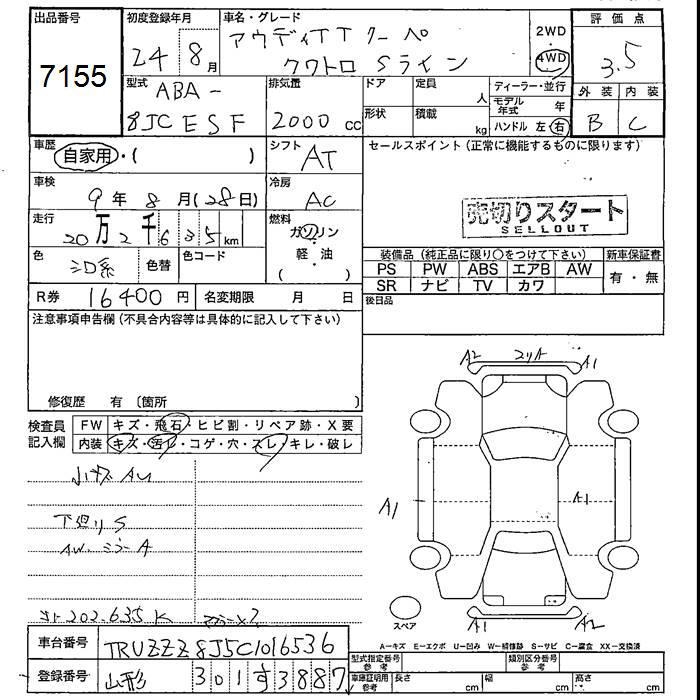 出品番号
7155
初度登録年月
24 8月
車名・グレード
アウディTT クーペ
クワトロ Sライン
2WD
・
4WD
評価点
3.5
外装 内装
B C
型式
ABA-
8JCESF
排気量
2000 cc
ドア
定員
人
形状
積載
kg
ディーラー・並行
モデル年式 年
ハンドル 左・右
車歴
自家用・( )
シフト
AT
セールスポイント(正常に機能するものに限ります)
車検
9年 8月(28日)
冷房
AC
売切りスタート
SELLOUT
走行
20万2千635km
燃料
ガソリン
軽・油
( )
色
シロ系
色替
色コード
装備品(純正品に限り○をつけて下さい)
新車保証書
PS PW ABS エアB AW
SR ナビ TV カワ
有・無
R券
16400円
名変期限 月 日
後日品
注意事項申告欄(不具合内容等は具体的に記入して下さい)
修復歴 有〔箇所 〕
検査員
記入欄
FW キズ・飛石・ヒビ割・リペア跡・X要
内装 キズ・汚レ・コゲ・穴・スレ・キレ・破レ
小キズ AU
下廻りS
AW.ミラーA
202.635K
A2 A1
A1 A1
A1 A2
スペア
A-キズ E-エクボ U-凹み W-補修跡 S-サビ C-腐食 XX-交換済
車台番号
TRUZZZ8J5C1016536
登録番号
山形 301 す 3887
型式指定番号
参考
類別区分番号
参考
車庫証明用
参考
長さ cm
幅 cm
高さ cm